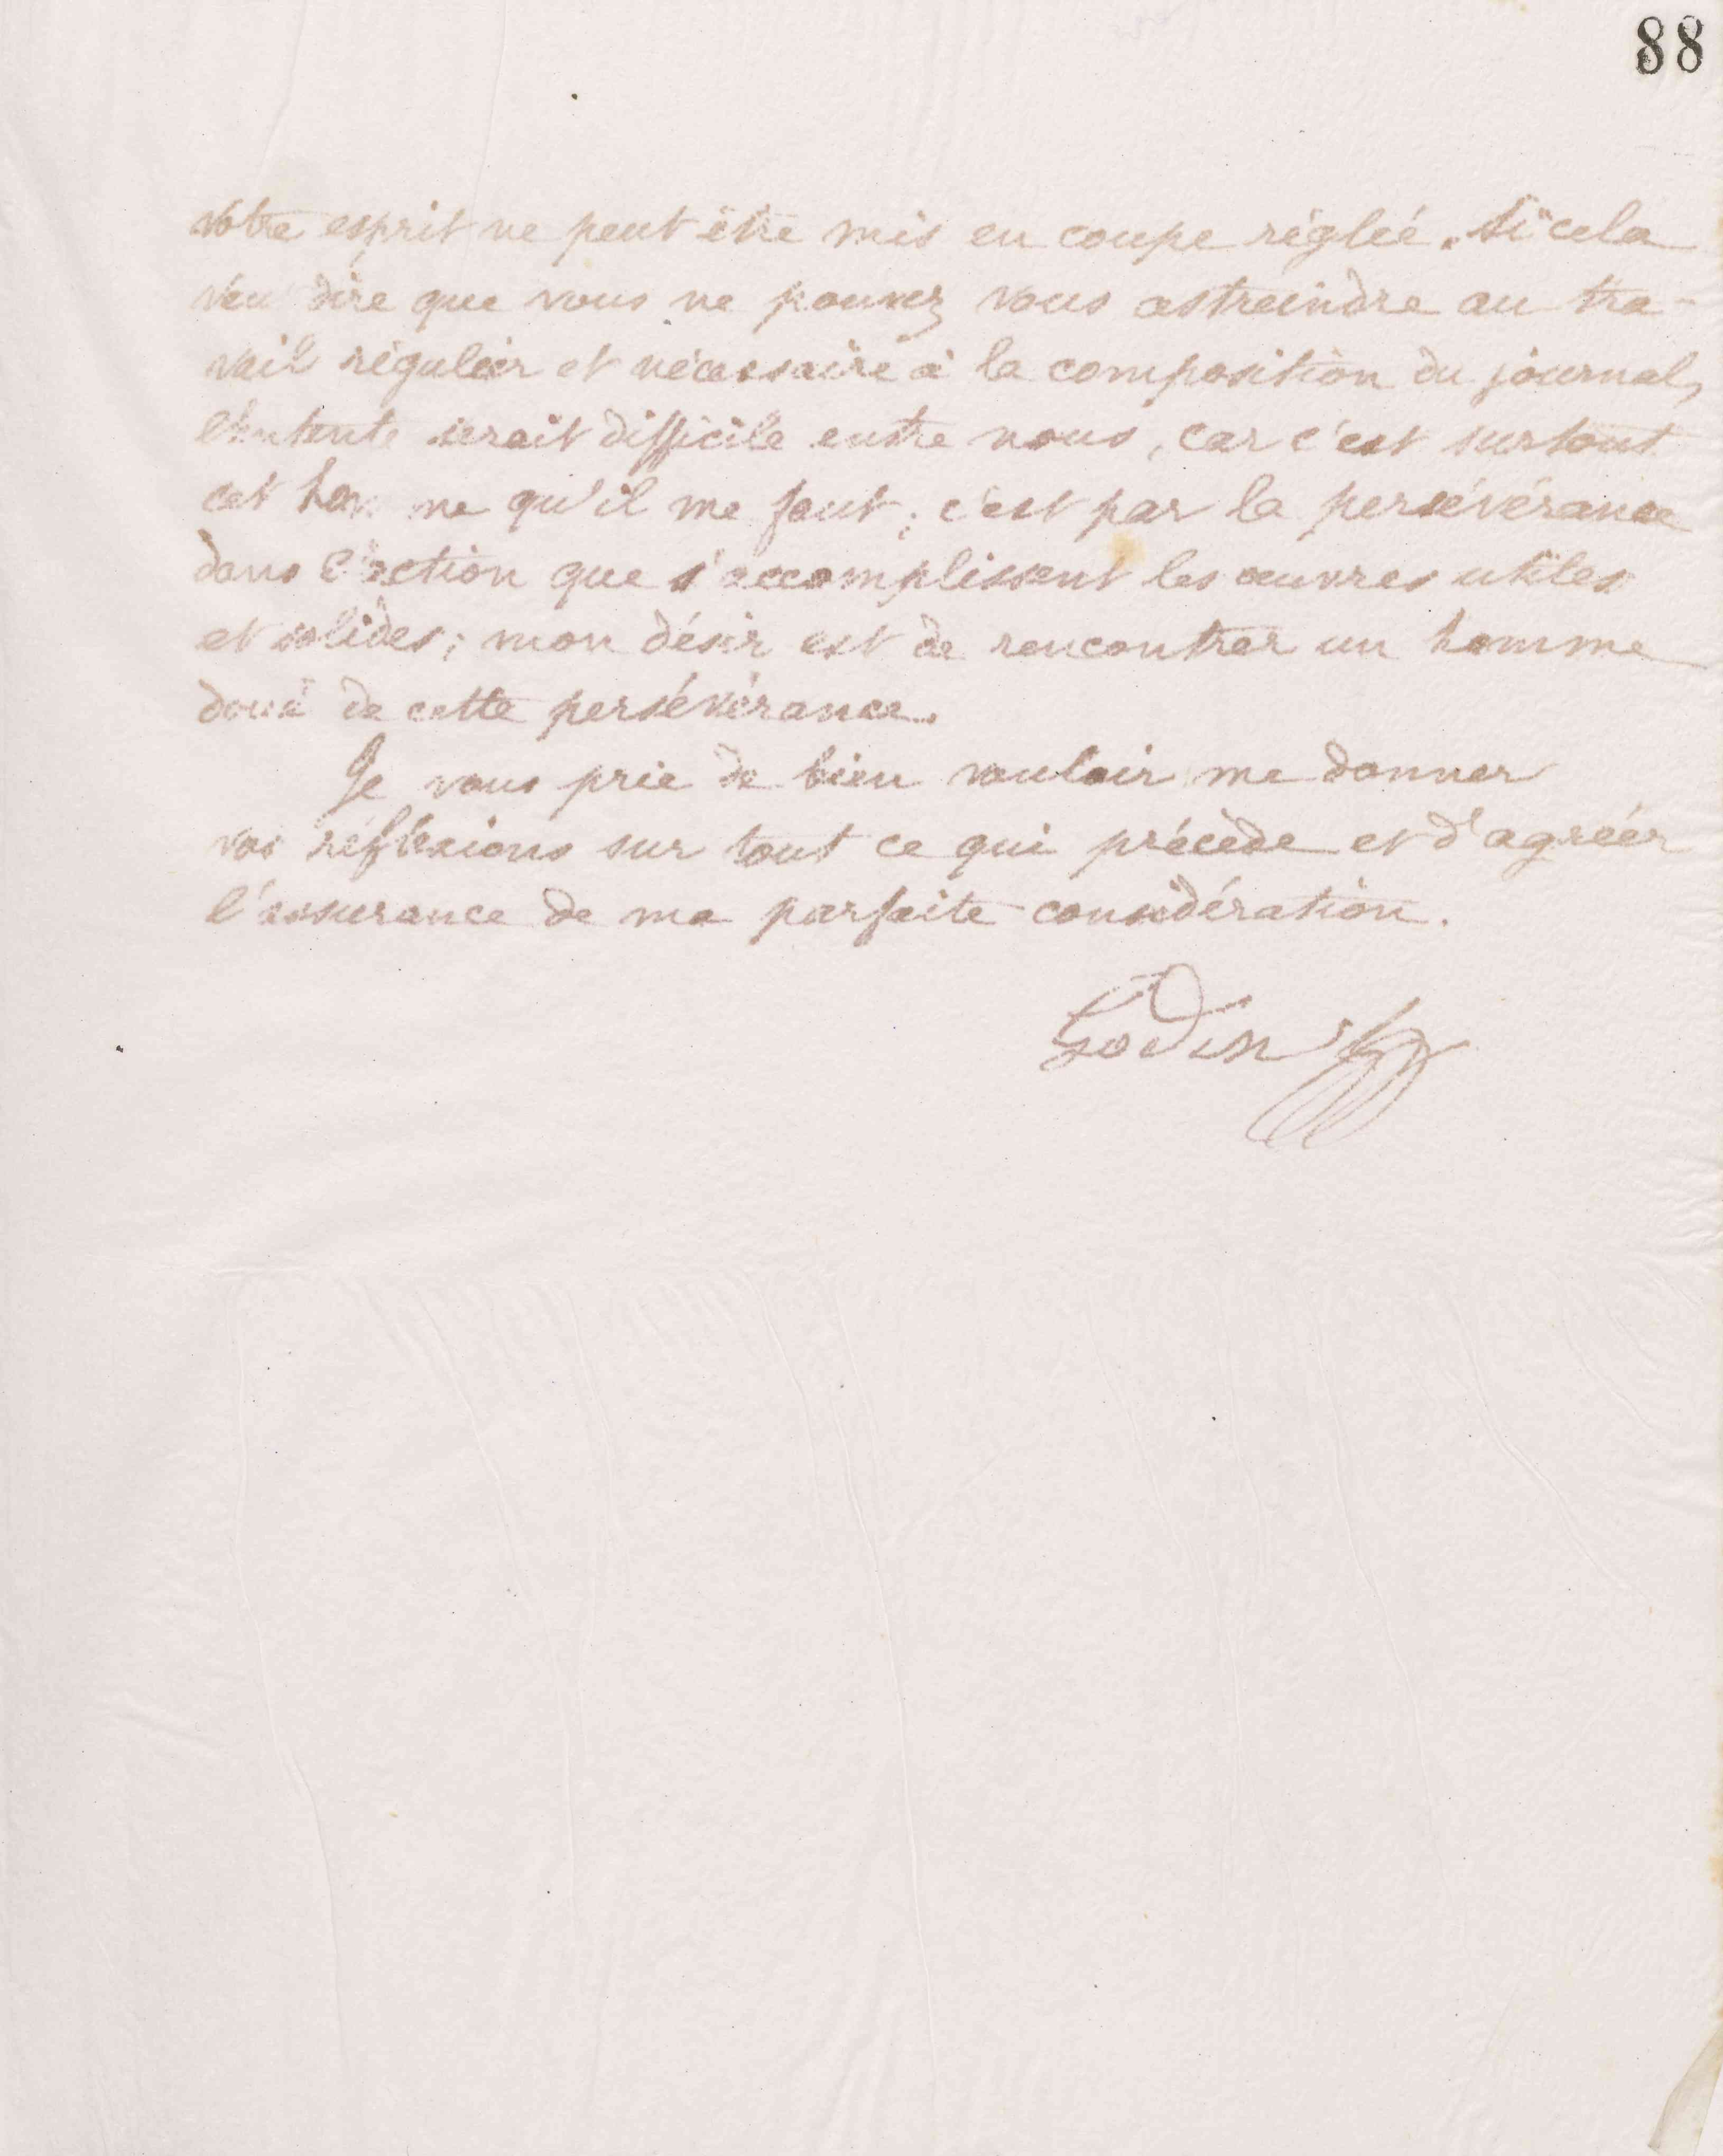 88
votre esprit ne peut être mis en coupe réglée. Si cela
veu dire que vous ne pouvez vous astreindre au tra-
vail régulier et nécessaire à la composition du journal,
l'entente serait difficile entre nous, car c'est surtout
cet homme qu'il me faut ; c'est par la persévérance
dans l'action que s'accomplissent les œuvres utiles
et solides ; mon désir est de rencontrer un homme
doué de cette persévérance.
Je vous prie de bien vouloir me donner
vos réflexions sur tout ce qui précède et d'agréer
l'assurance de ma parfaite considération.
Godin